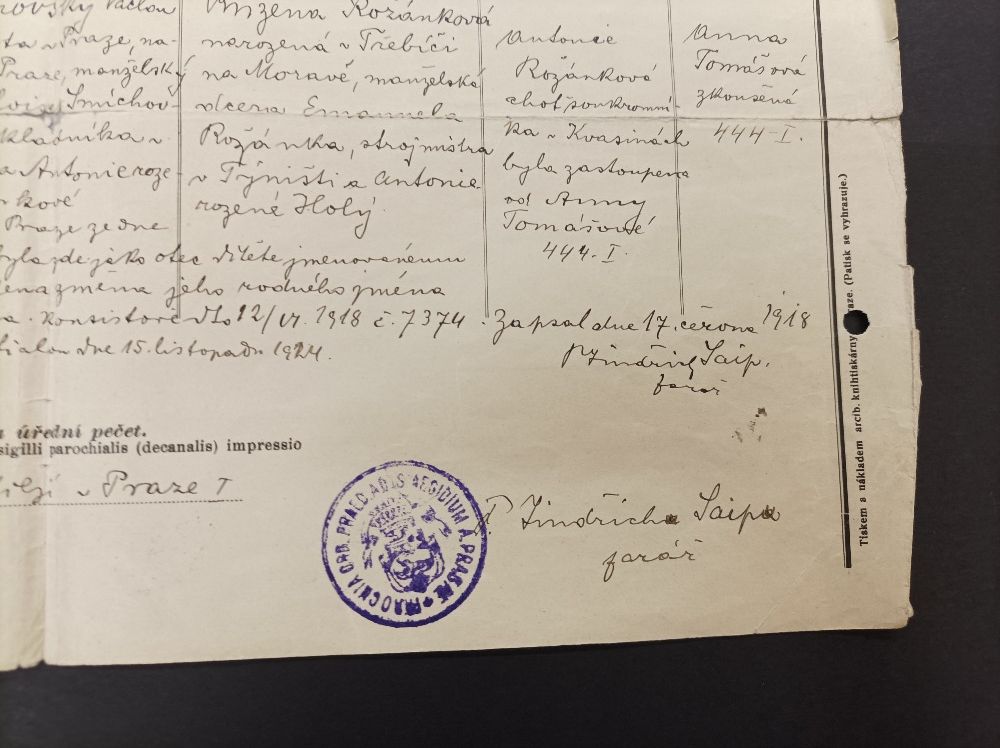 Václav
Praze, na-
Praze, manželský
Smíchov-
kladníka v
a Antonie roze-
kové
Praze ze dne
Božena Rožánková
narozená v Třebíči
na Moravě, manželská
dcera Emanuela
Rožánka, strojmistra
v Týništi a Antonie
rozené Holý
Antonie
Rožánková
choť soukromní-
ka v Kvasinách
byla zastoupena
od Anny
Tomášové
444-I.
Anna
Tomášová
zkoušená
444-I.
byl zde jako otec dítěte jmenovanému
změna jeho rodného jména
konsistoře dto 12/VI. 1918 č. 7374. Zapsal dne 17. června 1918
dne 15. listopadu 1924.
P Jindřich Saip,
farář
úřední pečet.
sigilli parochialis (decanalis) impressio
v Praze I
PAROCHIA ORD. PRAED. AD S. AEGIDIUM PRAGAE
P Jindřich Saip
farář
Tiskem a nákladem arcib. knihtiskárny Praze. (Patisk se vyhrazuje.)